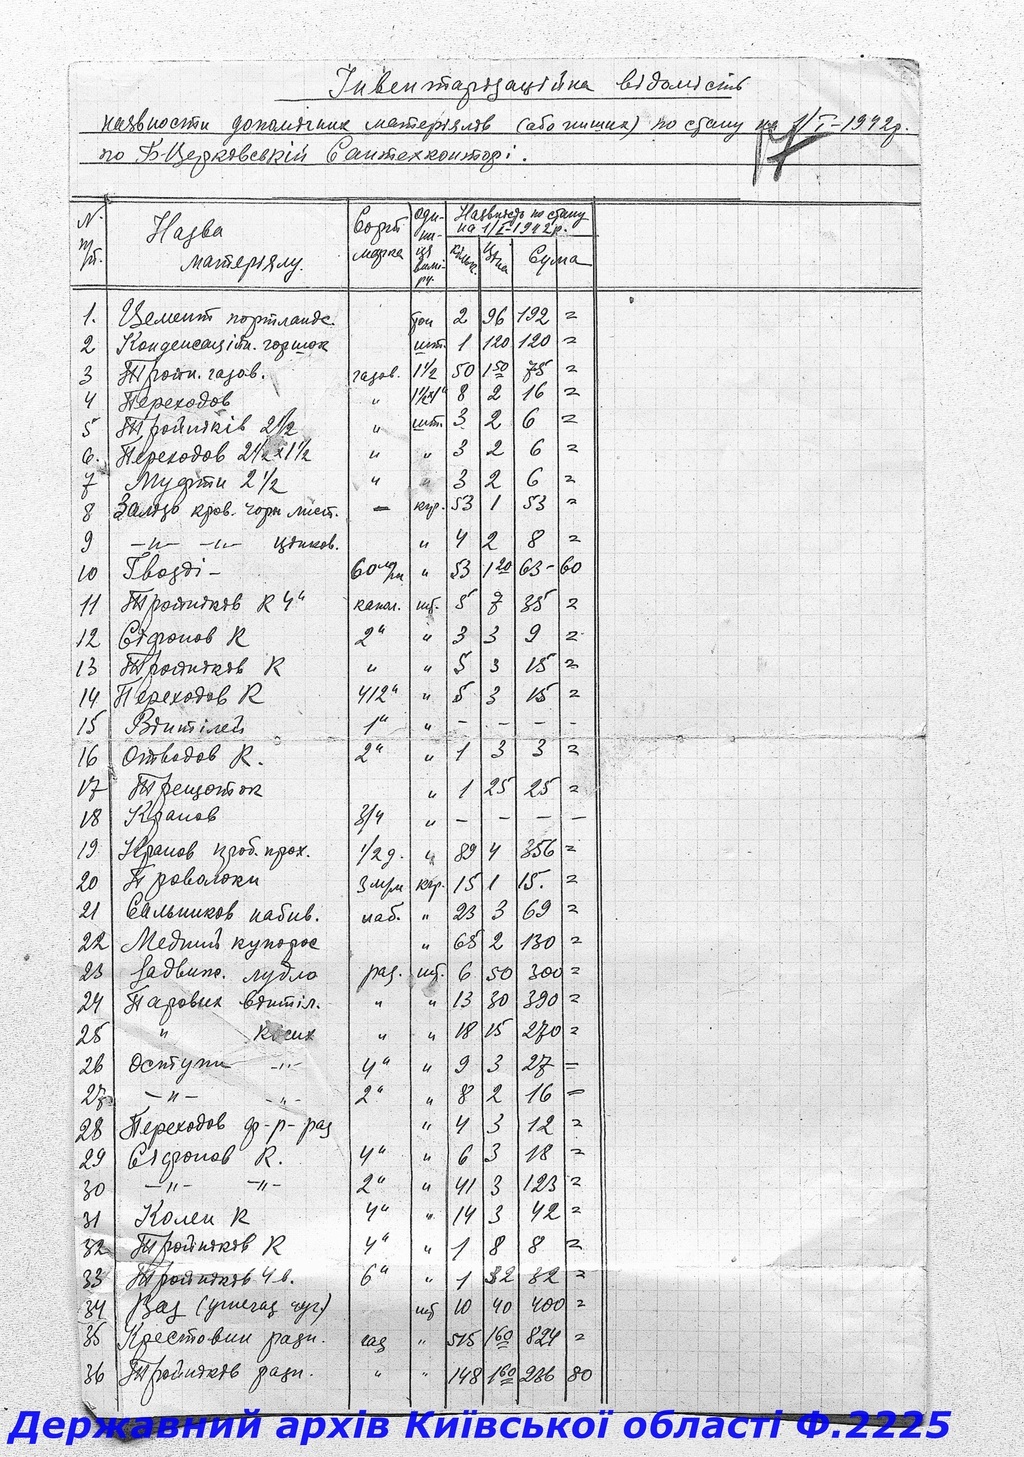 Інвентарізаційна відомість
наявности допоміжних матеріялів (або инших) по стану на 1/I-1942р.
по Б-Церковській Сантехконторі.
N п/п. Назва матеріялу. Сорт марка Оди-ни-ця вимі-ру. Наявність по стану на 1/I-1942р. кільк. ціна Сума
1. Цемент портландс. тон 2 96 192 =
2 Конденсаційн. горшок шт. 1 120 120 =
3 Тройн. газов. газов. 1½ 50 1 50 75 =
4 Переходов " 1½х1" 8 2 16 =
5 Тройників 2½ " шт. 3 2 6 =
6. Переходов 2½х1½ " " 3 2 6 =
7 Муфти 2½ " " 3 2 6 =
8 Залізо кров. чорн. лист. – кгр. 53 1 53 =
9 -"- -"- цінков. " 4 2 8 =
10 Гвозді - 60 м/м " 53 1 20 63 - 60
11 Тройників К 4" канал. шт. 5 7 35 =
12 Сіфонов К 2" " 3 3 9 =
13 Тройників К " " 5 3 15 =
14 Переходов К 4/2" " 5 3 15 =
15 Вдитілей 1" " - - - -
16 Отводов К. 2" " 1 3 3 =
17 Трещоток " 1 25 25 =
18 Кранов 3/4 " - - - -
19 Кранов проб. прох. 1/2 д. " 89 4 356 =
20 Проволоки 3 м/м кгр. 15 1 15. =
21 Сальников набив. наб. " 23 3 69 =
22 Медний купорос " 65 2 130 =
23 Задвиж. лудло раз. шт. 6 50 300 =
24 Парових вдитіл. " " 13 30 390 =
25 " косих " " 18 15 270 =
26 Оступи -"- 4" " 9 3 27 =
27 -"- -"- 2" " 8 2 16 =
28 Переходов ф-р-раз " 4 3 12 =
29 Сіфонов К. 4" " 6 3 18 =
30 -"- -"- 2" " 41 3 123 =
31 Колен К 4" " 14 3 42 =
32 Тройників К 4" " 1 8 8 =
33 Тройників Чв. 6" " 1 32 32 =
34 Ваз шт 10 40 400 =
35 Крестовин разн. газ " 515 1 60 824 =
36 Тройників разн. " " 148 1 60 236 80
Державний архів Київської області Ф.2225